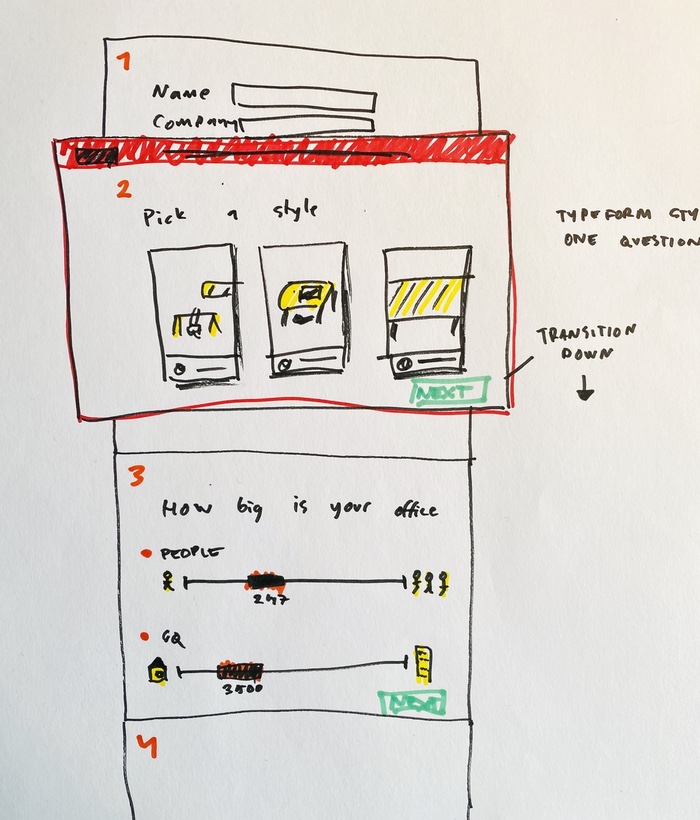 1
Name
Company
2
Pick a style
TYPEFORM STY
ONE QUESTION
TRANSITION
DOWN
NEXT
3
How big is your office
PEOPLE
247
SQ
3500
NEXT
4